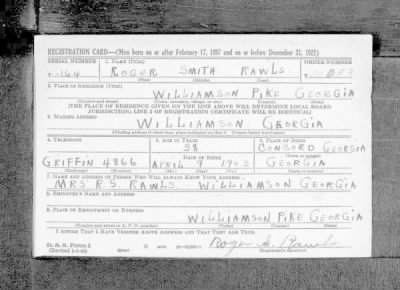 REGISTRATION CARD—(Men born on or after February 17, 1897 and on or before December 31, 1921)
SERIAL NUMBER 1. NAME (Print) ORDER NUMBER
T-164 ROGER SMITH RAWLS
(First) (Middle) (Last)
2. PLACE OF RESIDENCE (Print)
WILLIAMSON PIKE GEORGIA
(Number and street) (Town, township, village, or city) (County) (State)
[THE PLACE OF RESIDENCE GIVEN ON THE LINE ABOVE WILL DETERMINE LOCAL BOARD
JURISDICTION; LINE 2 OF REGISTRATION CERTIFICATE WILL BE IDENTICAL]
3. MAILING ADDRESS
WILLIAMSON GEORGIA
[Mailing address if other than place indicated on line 2. If same insert word same]
4. TELEPHONE 5. AGE IN YEARS 6. PLACE OF BIRTH
38 CONCORD GEORGIA
DATE OF BIRTH (Town or county)
GRIFFIN 4866 APRIL 9 1903 GEORGIA
(Exchange) (Number) (Mo.) (Day) (Yr.) (State or country)
7. NAME AND ADDRESS OF PERSON WHO WILL ALWAYS KNOW YOUR ADDRESS
MRS R.S. RAWLS WILLIAMSON GEORGIA
8. EMPLOYER'S NAME AND ADDRESS
9. PLACE OF EMPLOYMENT OR BUSINESS
WILLIAMSON PIKE GEORGIA
(Number and street or R. F. D. number) (Town) (County) (State)
I AFFIRM THAT I HAVE VERIFIED ABOVE ANSWERS AND THAT THEY ARE TRUE.
D. S. S. Form 1
(Revised 1-1-42) Roger S. Rawls
(Registrant's signature)